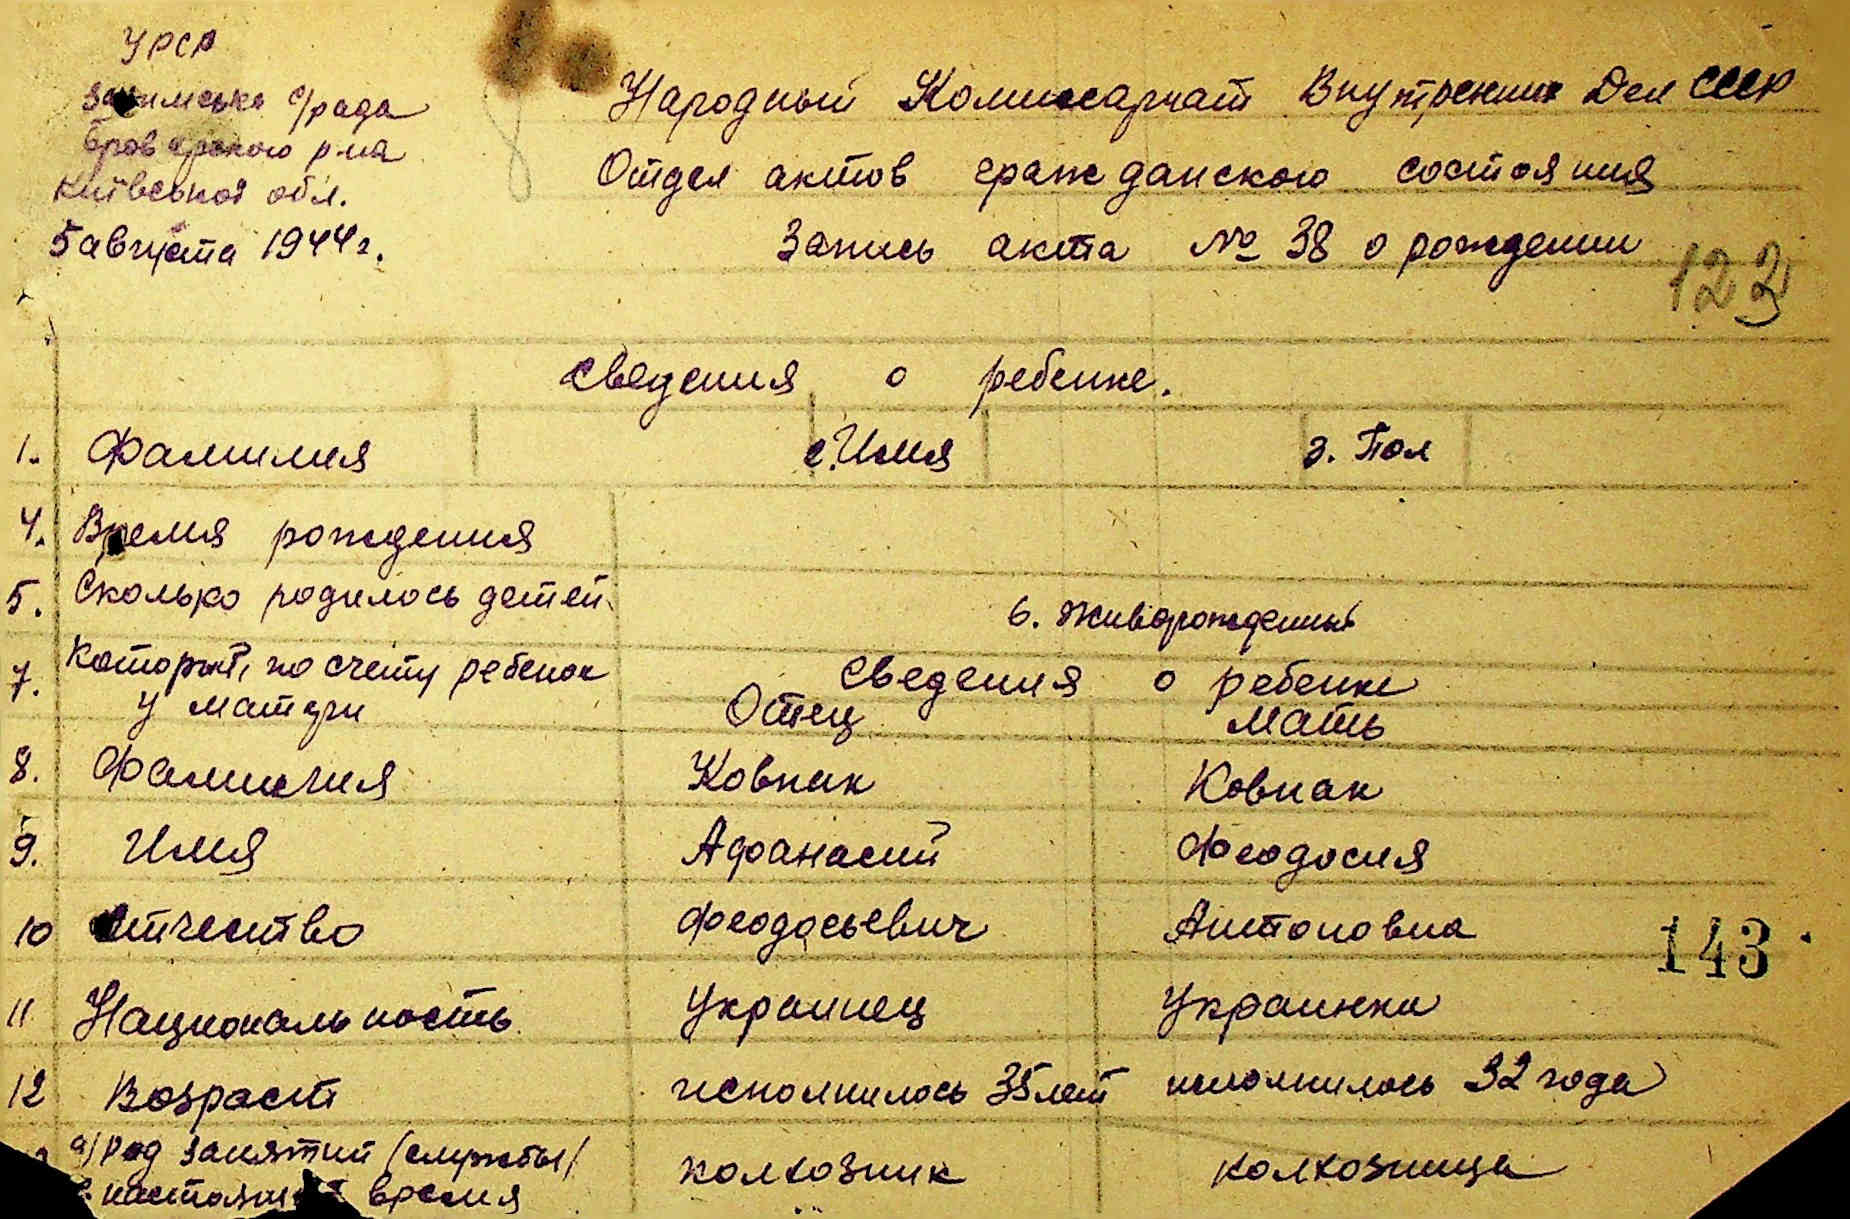 УРСР
Зазимська с/рада
Броварского р-на
Київськоя обл.
5 августа 1944 г.
Народный Комиссариат Внутренних Дел СССР
Отдел актов гражданского состояния
Запись акта № 38 о рождении
123
Сведения о ребенке.
1. Фамилия 2. Имя 3. Пол
4. Время рождения
5. Сколько родилось детей
6. Живорожденных
7. Который по счету ребенок
у матери
Сведения о ребенке
Отец Мать
8. Фамилия Ковпак Ковпак
9. Имя Афанасий Феодосия
10 Отчество Феодосьевич Антоновна
143
11 Национальность Украинец Украинка
12 Возраст исполнилось 35 лет исполнилось 32 года
а/ род занятий /службы/ колхозник колхозница
в настоящее время